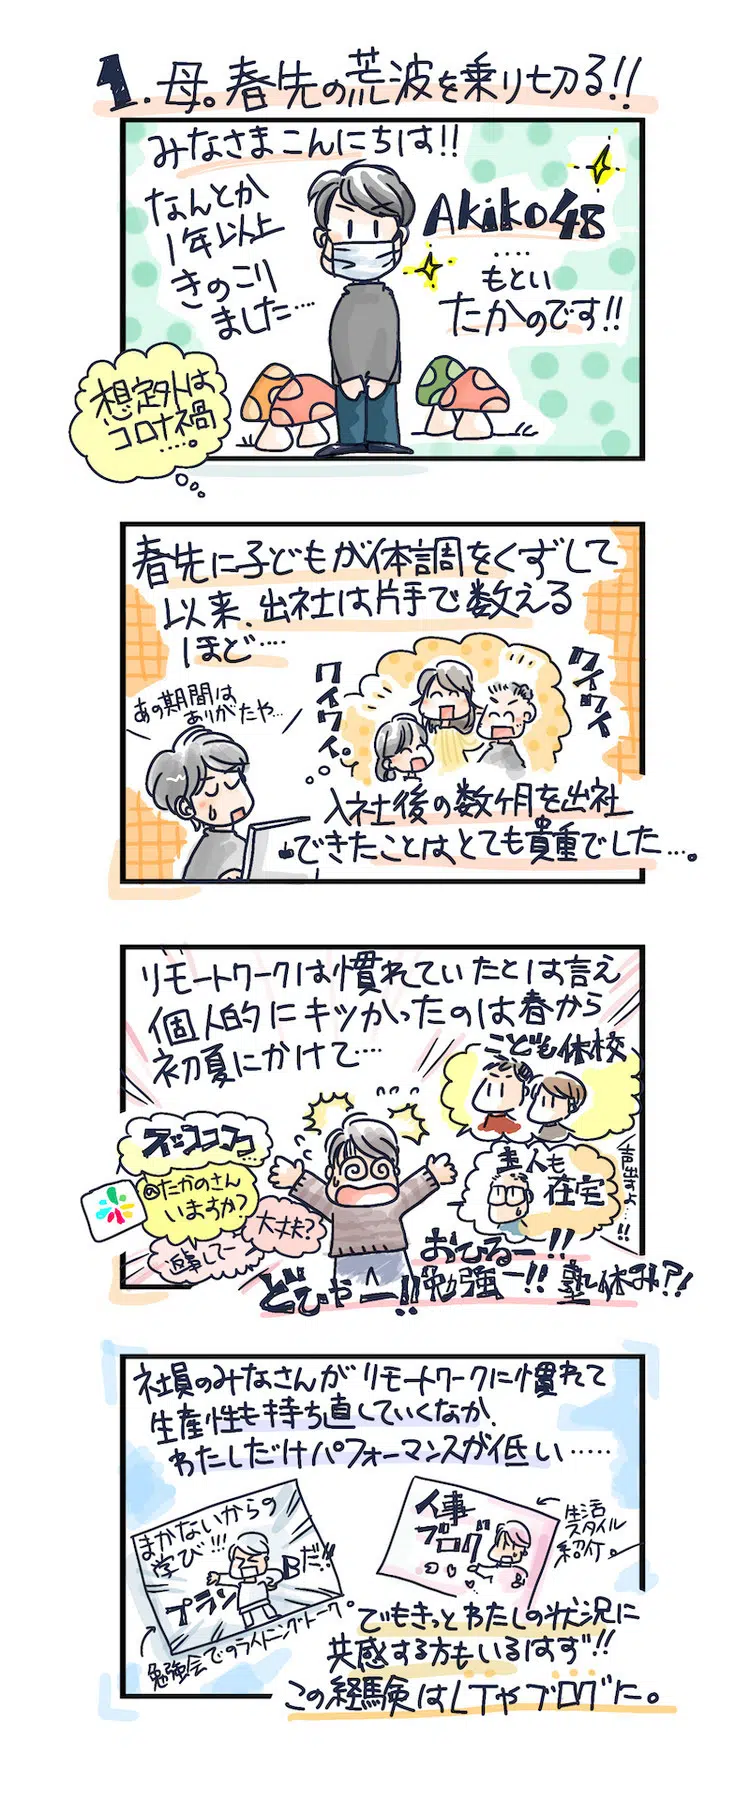 1. 母。春先の荒波を乗り切る!!
みなさまこんにちは!!
なんとか
1年以上
きのこり
ました‥‥
Akiko48
‥‥‥
もとい
たかのです!!
想定外は
コロナ禍
‥‥‥
春先に子どもが体調をくずして
以来、出社は片手で数える
ほど‥‥
あの期間は
ありがたや…
ワイワイ
ワイワイ。
入社後の数ヶ月を出社
できたことは、とても貴重でした‥‥。
リモートワークは慣れていたとは言え
個人的にキツかったのは春から
初夏にかけて‥‥
こども休校
スッココココ…
@たかのさん
いますか?
大丈夫?
返事してー
主人も
在宅
声出すよ…!!
おひるー!!
どひゃー!!
勉強ー!! 塾休み?!
社員のみなさんがリモートワークに慣れて
生産性も持ち直していくなか、
わたしだけパフォーマンスが低い‥‥‥
まかないからの
学び!!!
プランBだ!!
勉強会でのライトニングトーク。
人事
ブログ
生活
スタイル
紹介。
でもきっとわたしの状況に
共感する方もいるはず!!
この経験はLTやブログに。